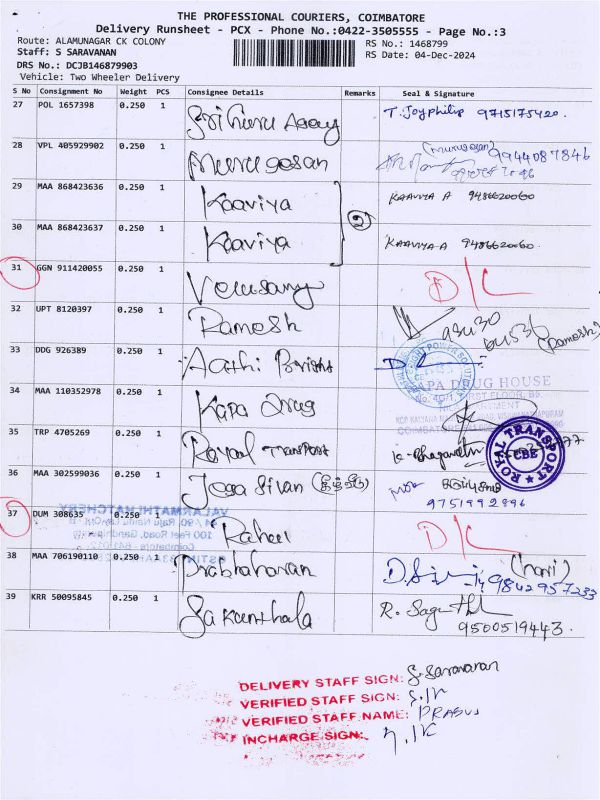 THE PROFESSIONAL COURIERS, COIMBATORE
Delivery Runsheet - PCX - Phone No.:0422-3505555 - Page No.:3
Route: ALAMUNAGAR CK COLONY
RS No.: 1468799
Staff: S SARAVANAN
RS Date: 04-Dec-2024
DRS No.: DCJB146879903
Vehicle: Two Wheeler Delivery
S No Consignment No Weight PCS Consignee Details Remarks Seal & Signature
27 POL 1657398 0.250 1 Sri Guru T. Joyphilip 9715175420
28 VPL 405929902 0.250 1 Murugesan (Murugesan) 9944087846
29 MAA 868423636 0.250 1 Kaaviya KAAVIYA A 9486620060
2
30 MAA 868423637 0.250 1 Kaaviya KAAVIYA A 9486620060
31 GGN 911420055 0.250 1 D/C
32 UPT 8120397 0.250 1 Ramesh (Ramesh)
33 DDG 926389 0.250 1 Aathi
34 MAA 110352978 0.250 1 Kapa Drug KAPA DRUG HOUSE
35 TRP 4705269 0.250 1 Royal Transport ROYAL TRANSPORT CBE
36 MAA 302599036 0.250 1 Joga Sivan 9751992896
VALARMATHI HATCHERY
37 DUM 308635 0.250 1 Rahul D/C
38 MAA 706190110 0.250 1 Prabhaharan (hari) 9842957233
39 KRR 50095845 0.250 1 Sakunthala R. 9500519443
DELIVERY STAFF SIGN: S. Saravanan
VERIFIED STAFF SIGN:
VERIFIED STAFF NAME: PRABU
INCHARGE SIGN: